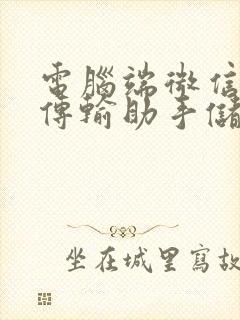 電腦端微信
傳輸助手儲
坐在城里寫故